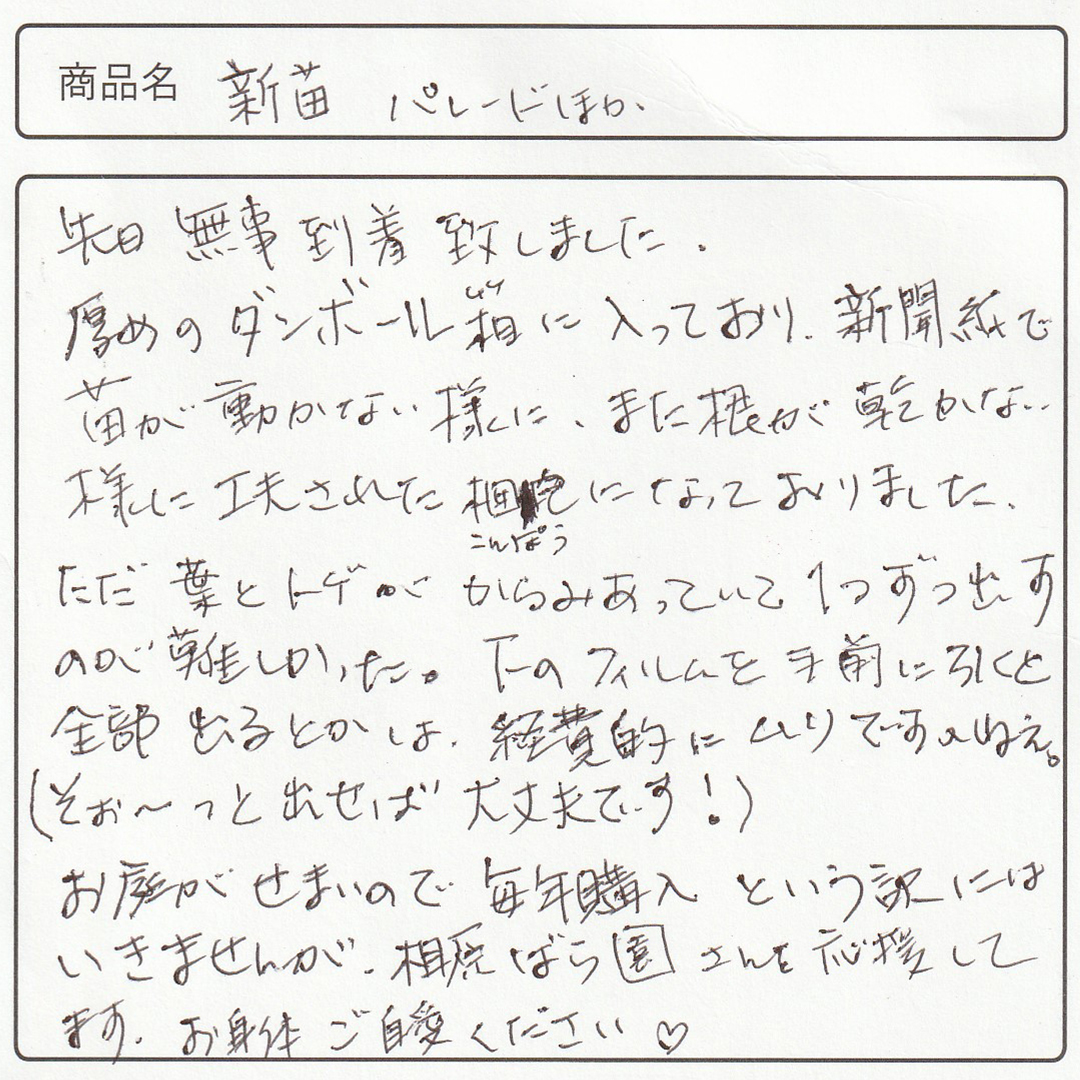 商品名 新苗 パレードほか.
先日 無事 到着 致しました.
厚めの ダンボール箱に 入っており. 新聞紙で
苗が 動かない 様に、また根が 乾かない
様に 工夫された 梱包になっておりました.
こんぽう
ただ 葉とトゲが からみあっていて 1つずつ出す
のが 難しかった。 下の フィルムを 手前に引くと
全部 出るとかは. 経費的に ムリですよねえ。
(そぉ〜っと 出せば 大丈夫です!)
お庭が せまいので 毎年購入 という訳には
いきませんが. 相原 ばら園 さんを 応援して
ます. お身体 ご自愛ください♡